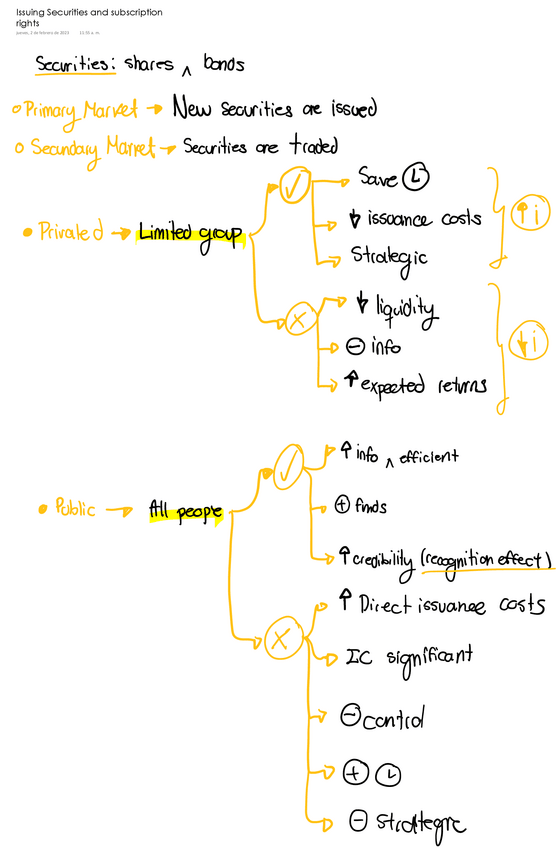 Issuing Securities and subscription
rights
jueves, 2 de febrero de 2023 11:55 a. m.
Securities: shares ∧ bonds
Primary Market → New securities are issued
Secundary Market → Securities are traded
✓ → Save
↓ issuance costs
Strategic
↑ i
• Privated → Limited group
X → ↓ liquidity
⊖ info
↑ expected returns
↓ i
✓ → ↑ info ∧ efficient
⊕ funds
↑ credibility (recognition effect)
• Public → All people
X → ↑ Direct issuance costs
IC significant
⊖ control
⊕
⊖ strategic